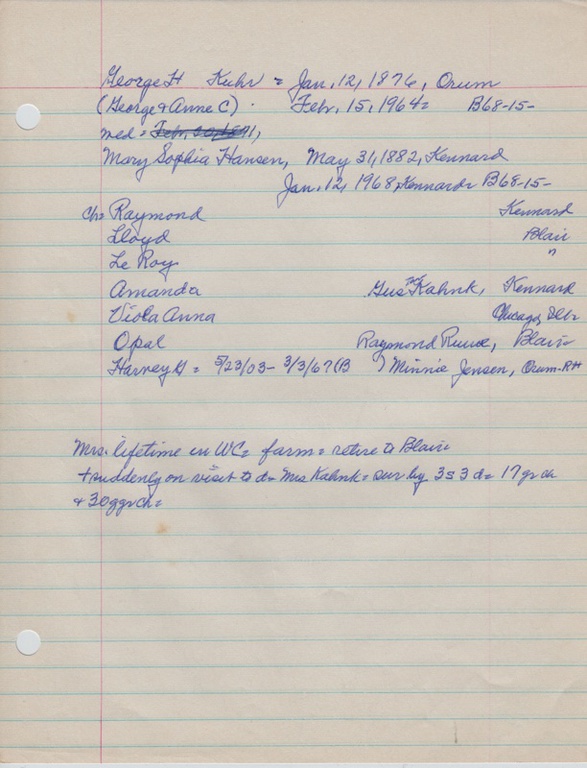 George H Kuhr = Jan. 12, 1876, Orum
(George & Anne C) Feb. 15, 1964= B68-15-
med =
Mary Sophia Hansen, May 31, 1882, Kennard
Jan. 12, 1968, Kennard= B68-15-
ch= Raymond Kennard
Lloyd Blair
Le Roy "
Amanda Gus Kahnk, Kennard
Viola Anna Chicago, Ill=
Opal Raymond Blair=
Harvey G = 5/23/03 - 3/3/67 (B ) Minnie Jensen, Orum-RH
Mrs. lifetime in WC= farm= retire to Blair=
+ suddenly on visit to d= Mrs Kahnk= sur by 3s 3d= 17 gr ch
& 30 ggrch=